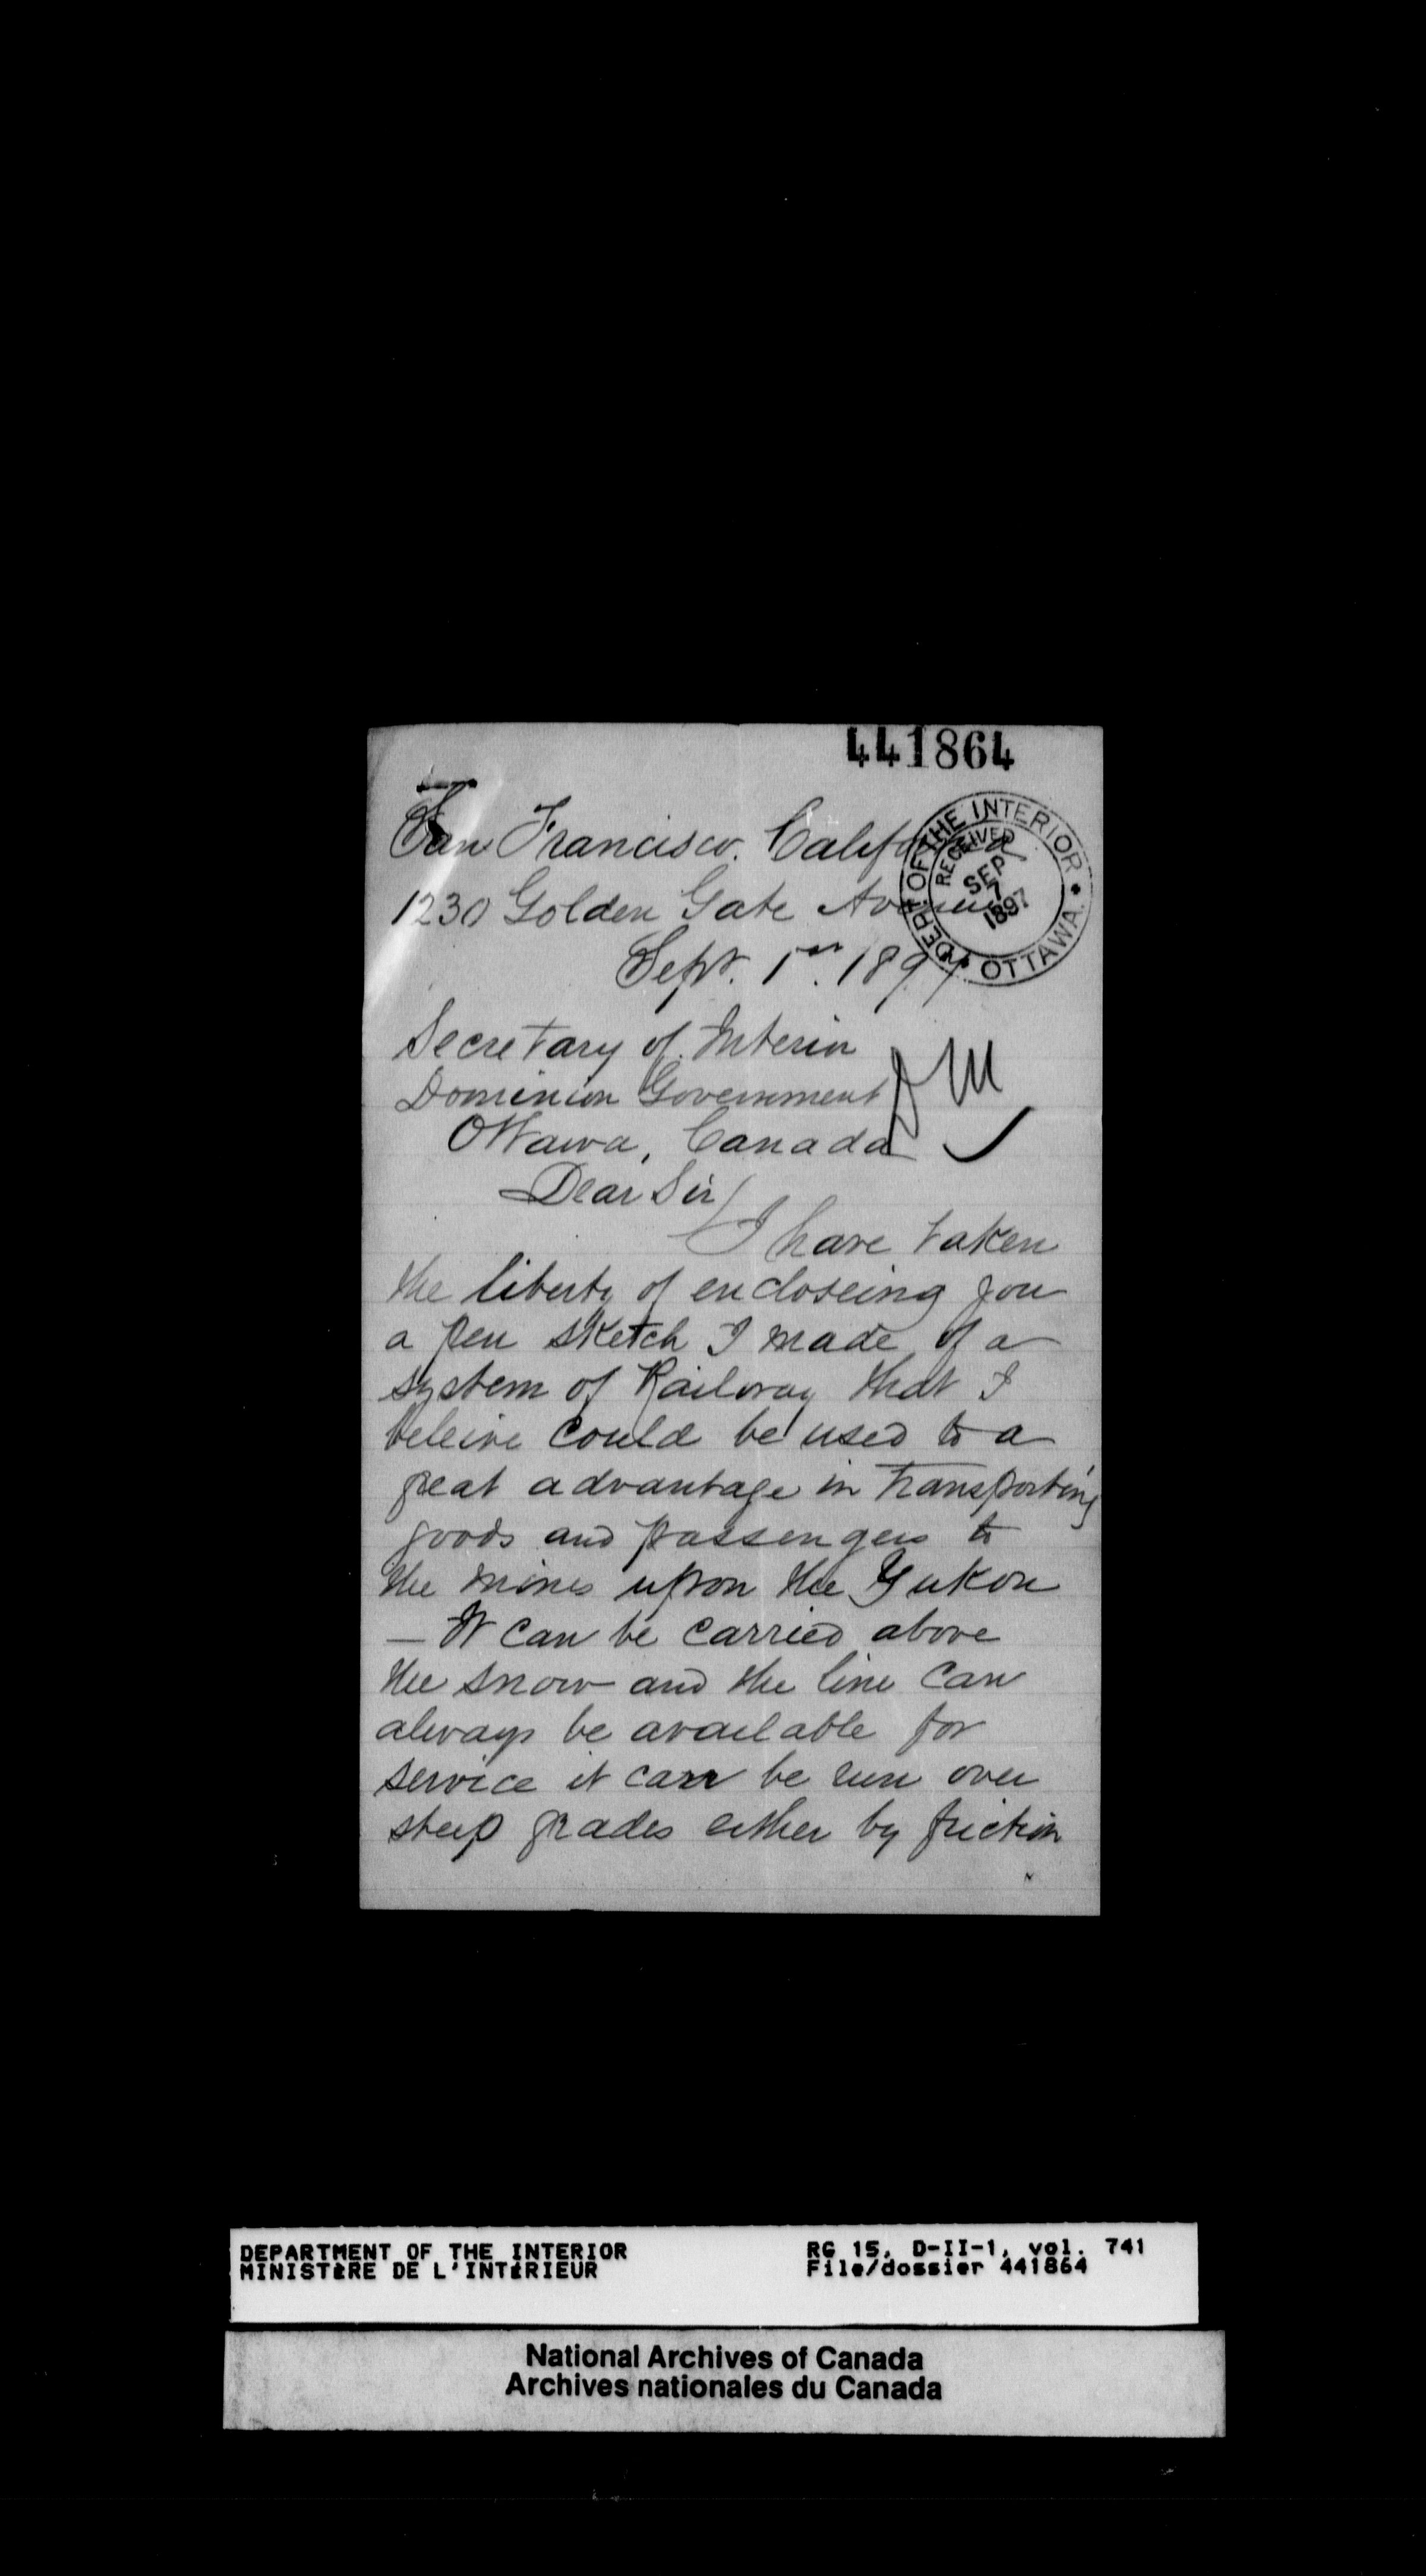 441864
San Francisco. California
1230 Golden Gate Avenue
DEPT OF THE INTERIOR • OTTAWA •
RECEIVED
SEP
7
1897
Sept. 1st. 1897
Secretary of Interior
Dominion Government
Ottawa, Canada
Dear Sir/
I have taken
the liberty of encloseing you
a pen sketch I made of a
system of Railway that I
beleive could be used to a
great advantage in transporting
goods and passengers to
the mines upon the Yukon
— It can be carried above
the snow and the line can
always be available for
service it can be run over
steep grades either by friction
DEPARTMENT OF THE INTERIOR
MINISTÈRE DE L'INTÉRIEUR
RG 15, D-II-1, vol. 741
File/dossier 441864
National Archives of Canada
Archives nationales du Canada